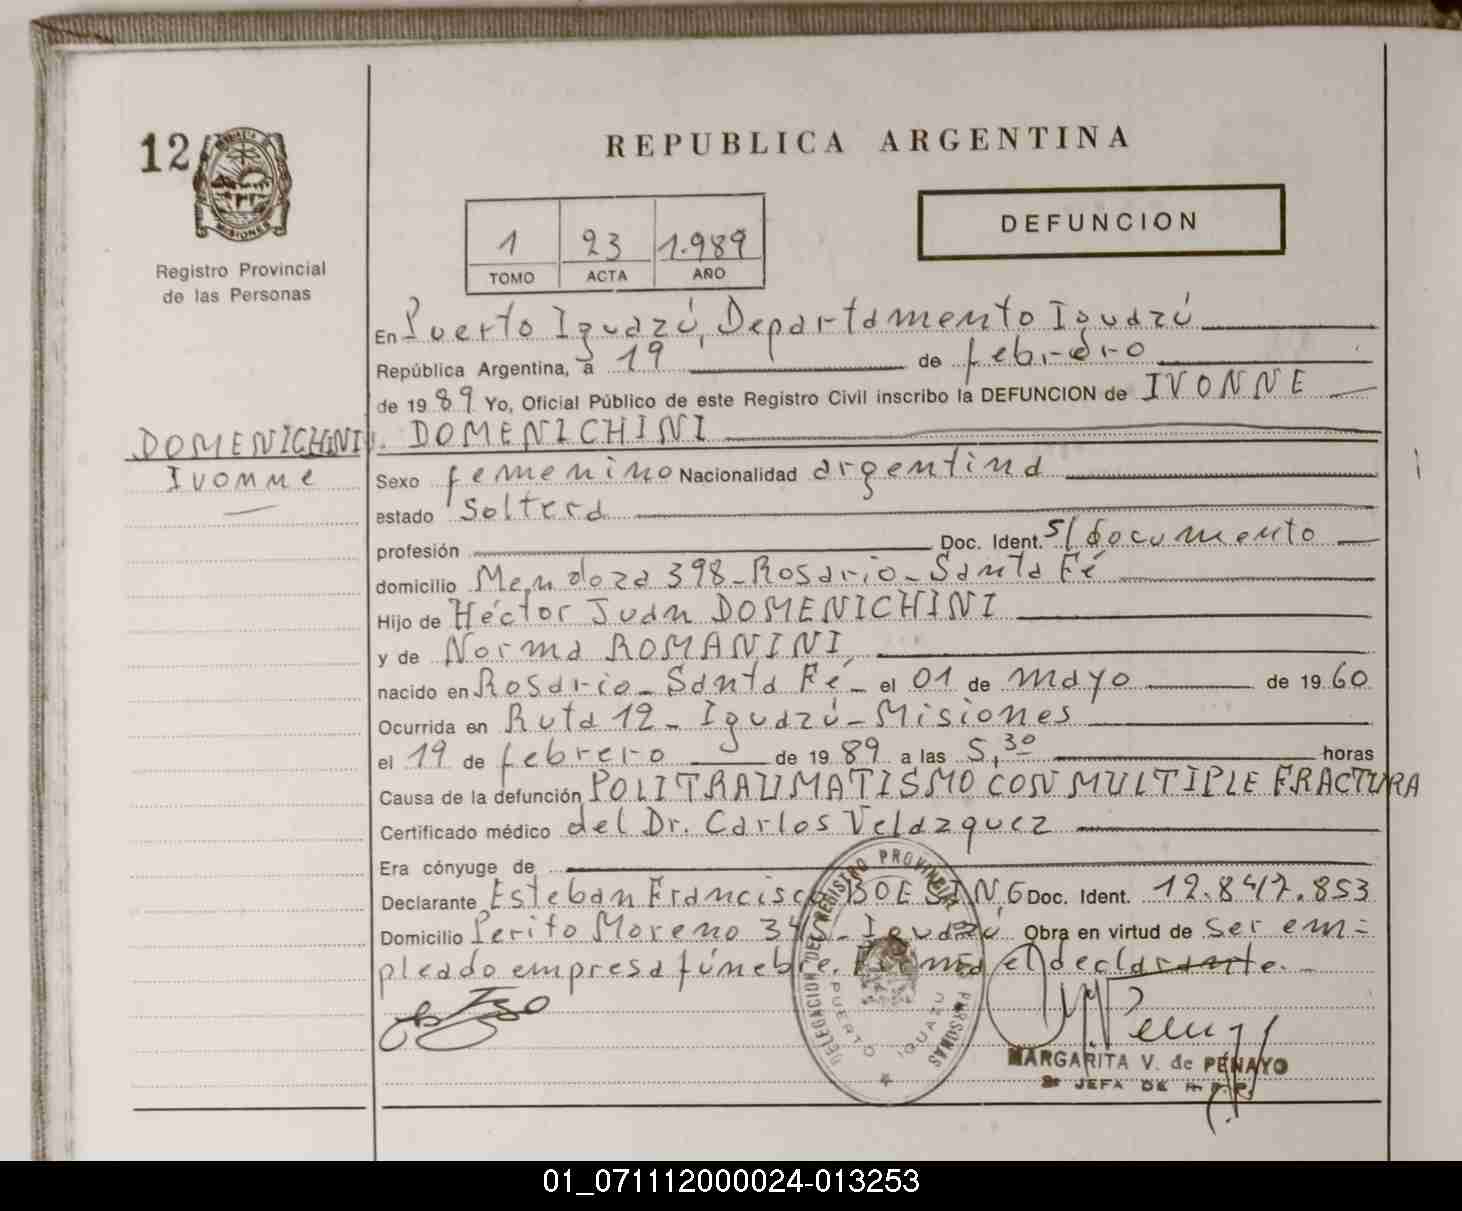 12
MISIONES
Registro Provincial
de las Personas
REPUBLICA ARGENTINA
1 23 1.989
TOMO ACTA AÑO
DEFUNCION
En Puerto Iguazú, Departamento Iguazú
República Argentina, a 19 de febrero
de 1989 Yo, Oficial Público de este Registro Civil inscribo la DEFUNCION de IVONNE
DOMENICHINI
DOMENICHINI
Ivonne
Sexo femenino Nacionalidad argentina
estado Soltera
profesión Doc. Ident. s/documento
domicilio Mendoza 398-Rosario-Santa Fé
Hijo de Héctor Juan DOMENICHINI
y de Norma ROMANINI
nacido en Rosario-Santa Fé- el 01 de mayo de 1960
Ocurrida en Ruta 12- Iguazú-Misiones
el 19 de febrero de 1989 a las 5,30 horas
Causa de la defunción POLITRAUMATISMO CON MULTIPLE FRACTURA
Certificado médico del Dr. Carlos Velazquez
Era cónyuge de
Declarante Esteban Francisco BOESING Doc. Ident. 12.847.853
Domicilio Perito Moreno - Iguazú Obra en virtud de ser em=
pleado empresa fúnebre. Firma el declarante.-
DELEGACION DEL REGISTRO PROVINCIAL DE PERSONAS
PUERTO IGUAZU
MARGARITA V. de PENAYO
JEFA DE
01_071112000024-013253